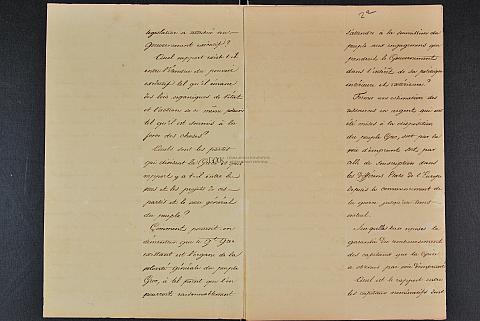 législation a attribué au
Gouvernement exécutif?
Quel rapport existe t-il
entre l'étendue du pouvoir
exécutif tel qu'il émane
des lois organiques de l'état
et l'action de ce même pouvoir
tel qu'il est soumis à la
force des choses?
Quels sont les partis
qui divisent la Grèce et quel
rapport y a t-il entre le
but et les projets de ces
partis et le vœu général
du peuple?
Comment pourrait-on
démontrer que le Gt Grec
existant est l'organe de la
volonté générale du peuple
Grec, à tel point que l'on
pourrait raisonnablement
2a
s'attendre à la soumission du
peuple aux engagemens que
prendrait le Gouvernement
dans l'intérêt de sa politique
intérieure et extérieure?
Former une estimation des
ressources en argent qui ont
été mises à la disposition
du peuple Grec, soit par la
voie d'emprunt soit par
celle de souscription dans
les différens Etats de l'Europe
depuis le commencement de
la guerre jusqu'au tems
actuel.
Sur quelles bases repose la
garantie du remboursement
des capitaux que la Grèce
a obtenus par voie d'emprunt
Quel est le rapport entre
les capitaux nominatifs dont